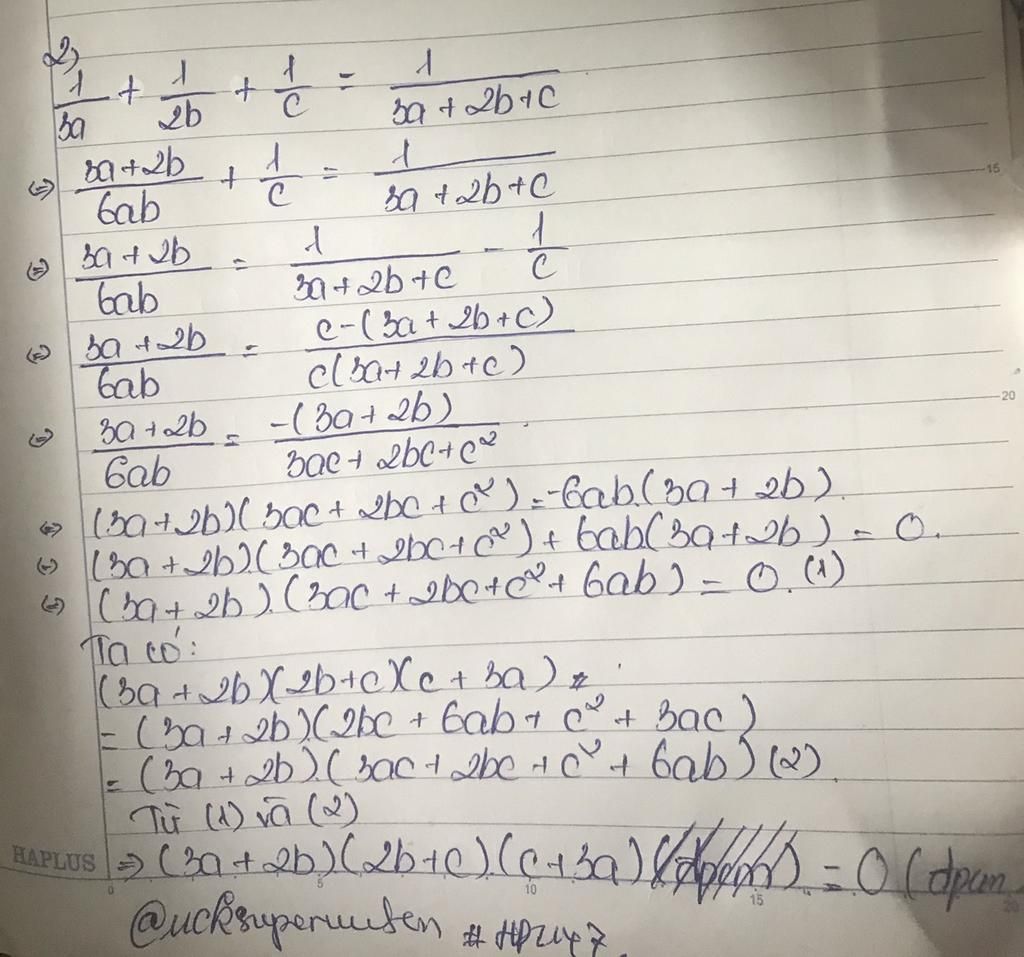 2)
1/3a + 1/2b + 1/c = 1/(3a + 2b + c)
⇔ (3a + 2b)/6ab + 1/c = 1/(3a + 2b + c)
⇔ (3a + 2b)/6ab = 1/(3a + 2b + c) - 1/c
⇔ (3a + 2b)/6ab = (c - (3a + 2b + c))/(c(3a + 2b + c))
⇔ (3a + 2b)/6ab = (-(3a + 2b))/(3ac + 2bc + c²)
⇔ (3a + 2b)(3ac + 2bc + c²) = -6ab.(3a + 2b).
⇔ (3a + 2b).(3ac + 2bc + c²) + 6ab(3a + 2b) = 0.
⇔ (3a + 2b).(3ac + 2bc + c² + 6ab) = 0. (1)
Ta có:
(3a + 2b)(2b + c)(c + 3a)
= (3a + 2b)(2bc + 6ab + c² + 3ac)
= (3a + 2b).(3ac + 2bc + c² + 6ab) (2)
Từ (1) và (2)
HAPLUS ⇒ (3a + 2b)(2b + c)(c + 3a) = 0 (dpcm
15
20
0 5 10 15 20